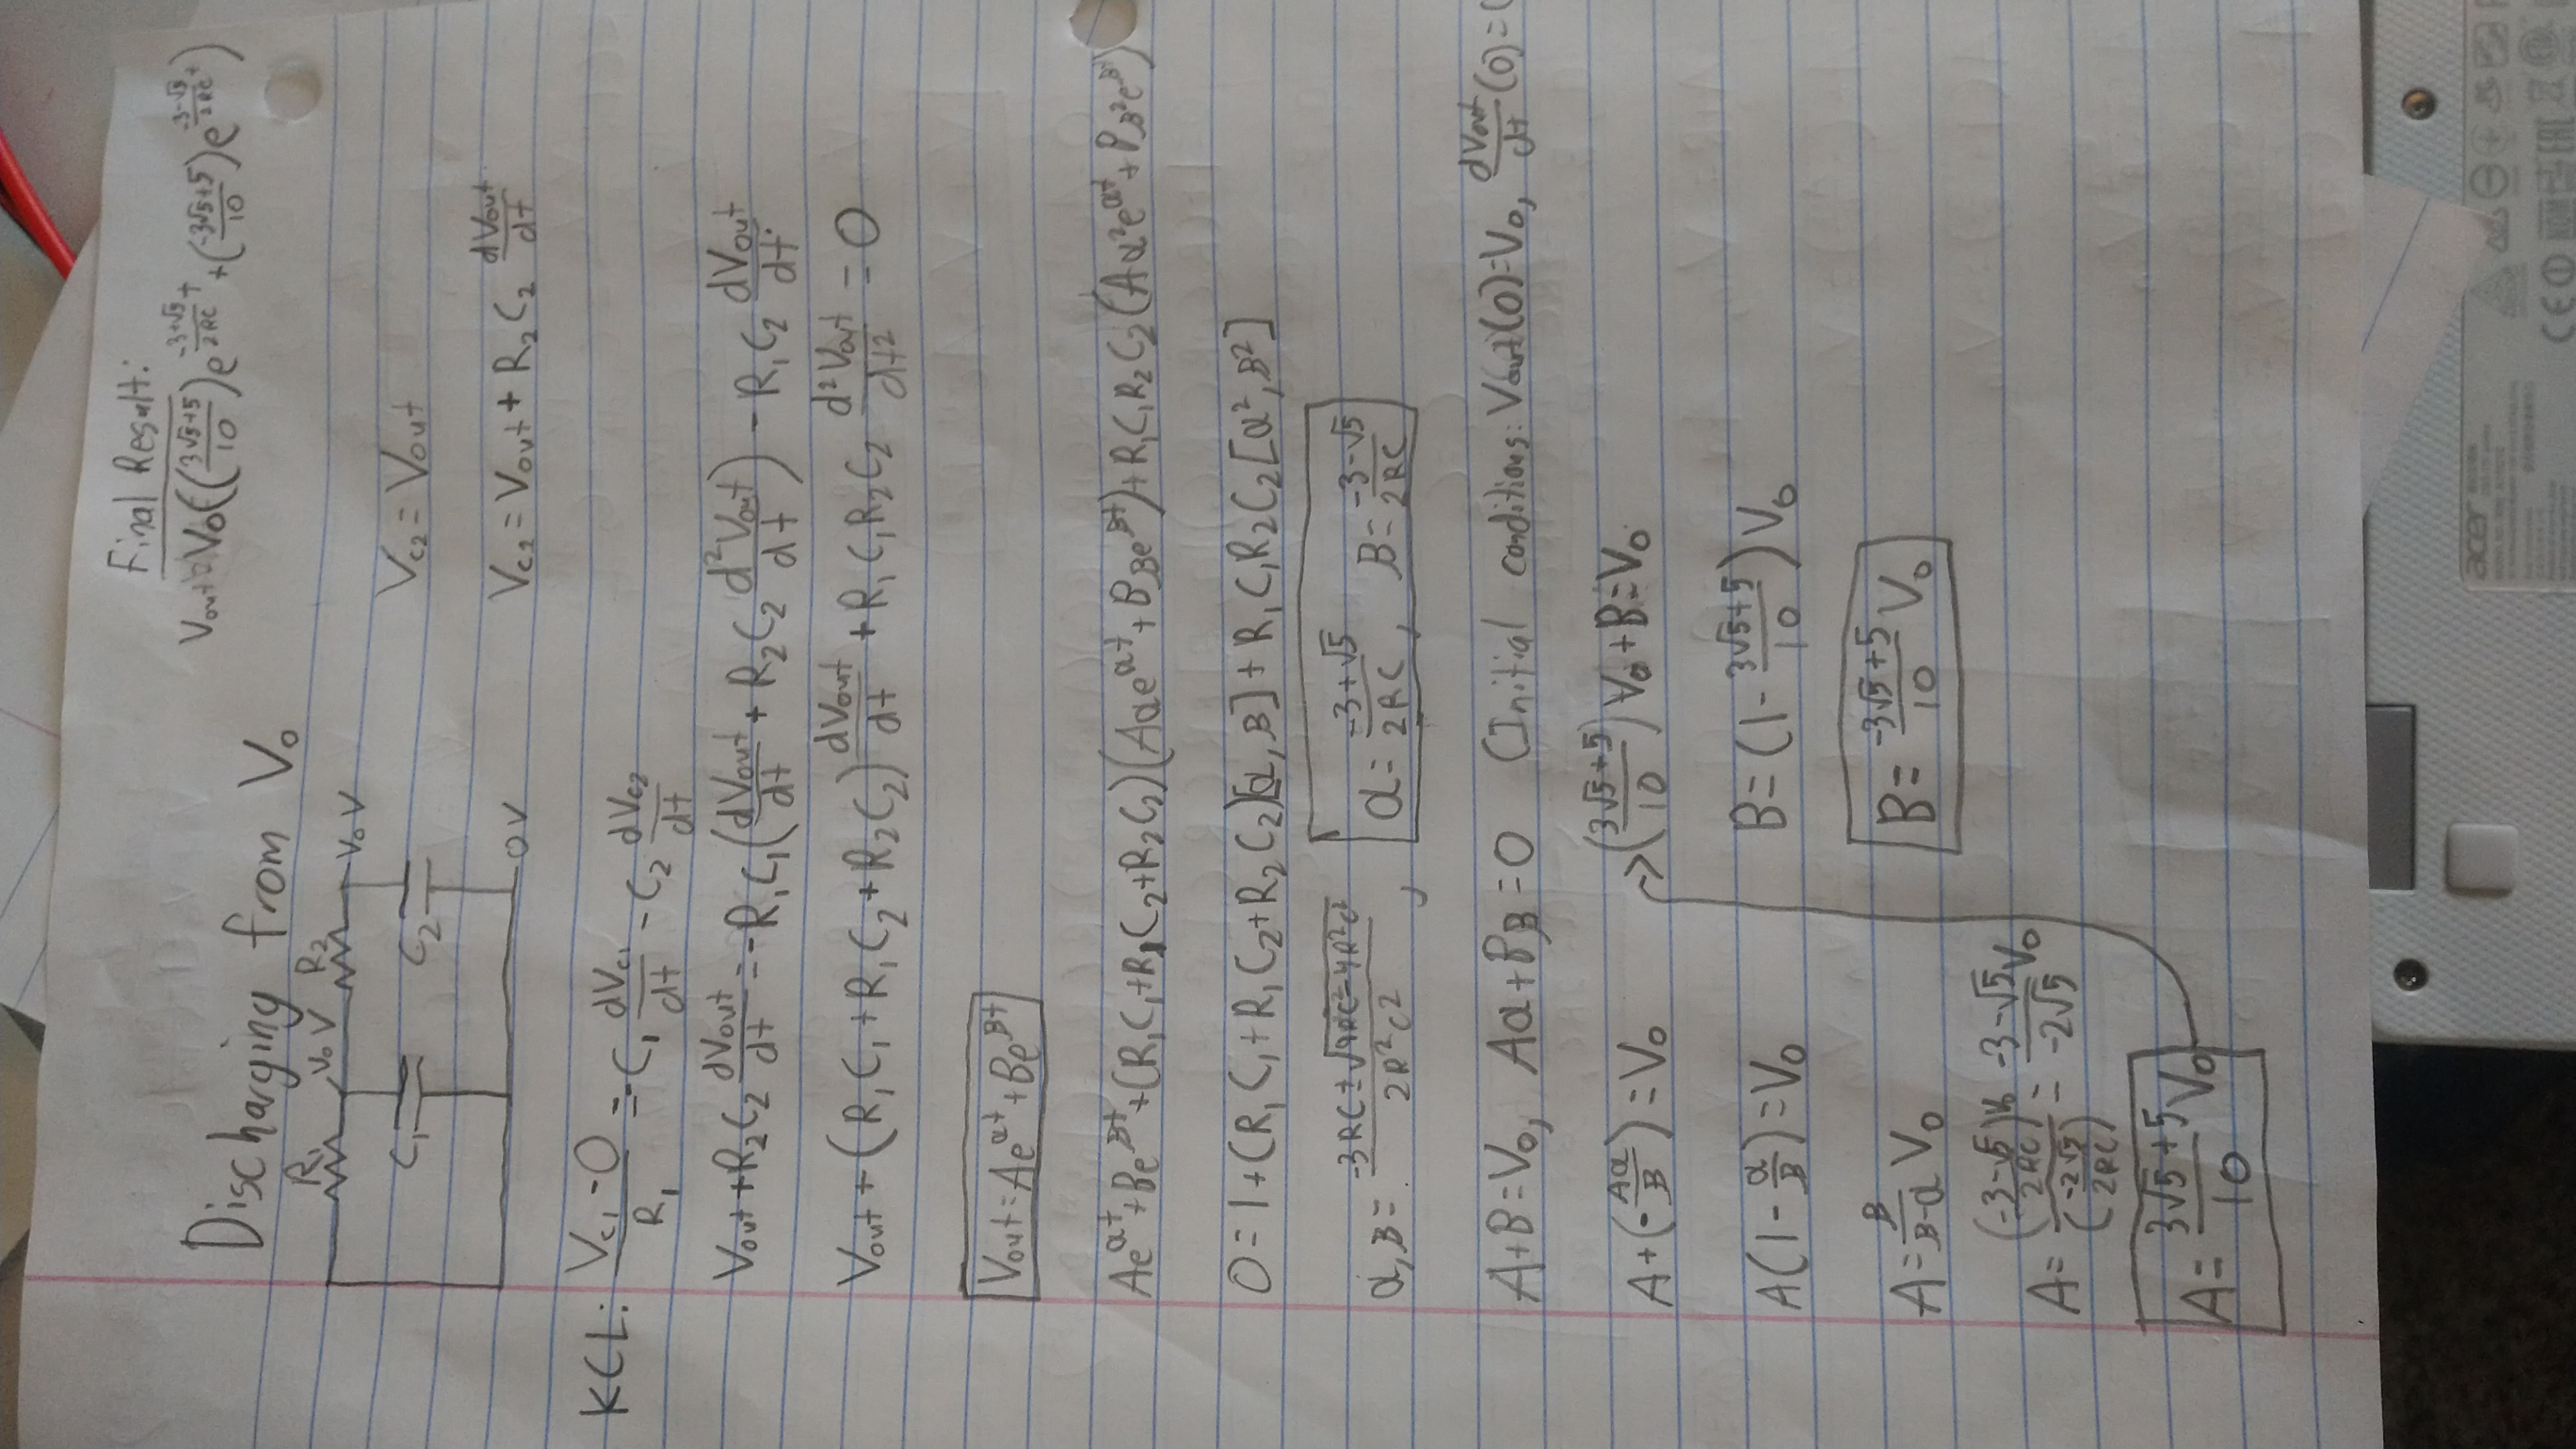 Final Result:
Vout = V₀(((3√5+5)/10)e^((-3+√5)/(2RC) t) + ((-3√5+5)/10)e^((-3-√5)/(2RC) t))
Discharging from V₀
R₁ V₀ V R₂ V₀ V
C₁ C₂
0V
Vc₂ = Vout
Vc₂ = Vout + R₂C₂ dVout/dt
KCL: (Vc₁ - 0)/R₁ = -C₁ dVc₁/dt - C₂ dVc₂/dt
Vout + R₂C₂ dVout/dt = -R₁C₁(dVout/dt + R₂C₂ d²Vout/dt) - R₁C₂ dVout/dt
Vout + (R₁C₁ + R₁C₂ + R₂C₂) dVout/dt + R₁C₁R₂C₂ d²Vout/dt² = 0
Vout = Ae^αt + Be^βt
Ae^αt + Be^βt + (R₁C₁ + R₁C₂ + R₂C₂)(Aαe^αt + Bβe^βt) + R₁C₁R₂C₂(Aα²e^αt + Bβ²e^βt)
0 = 1 + (R₁C₁ + R₁C₂ + R₂C₂)[α, β] + R₁C₁R₂C₂[α², β²]
α, β = (-3RC ± √(9RC² - 4R²C²))/(2R²C²), α = (-3+√5)/(2RC), β = (-3-√5)/(2RC)
A + B = V₀, Aα + Bβ = 0 (Initial conditions: Vout(0) = V₀, dVout/dt (0) = 0
A + (-Aα/β) = V₀
A(1 - α/β) = V₀
A = β/(β-α) V₀
A = ((-3-√5)/(2RC))V₀/((-2√5)/(2RC)) = (-3-√5)/(-2√5) V₀
A = (3√5+5)/10 V₀
→ ((3√5+5)/10) V₀ + B = V₀
B = (1 - (3√5+5)/10) V₀
B = (-3√5+5)/10 V₀
acer
CE